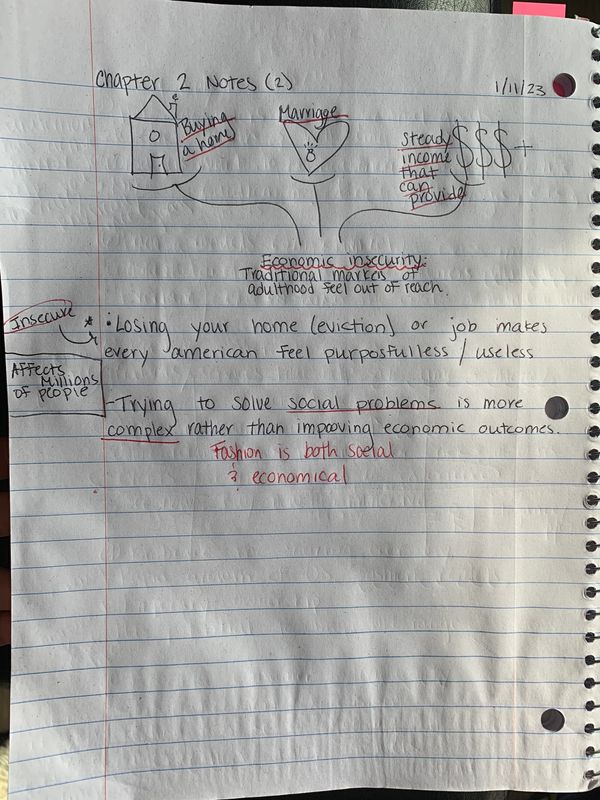 Chapter 2 Notes (2)
1/11/23
Buying
a home
Marriage
Steady
income
that
can
provide
$$$+
Economic insecurity:
Traditional markers of
adulthood feel out of reach.
Insecure *
• Losing your home (eviction) or job makes
every american feel purposfulless / useless
Affects
Millions
of people
- Trying to solve social problems is more
complex rather than impooving economic outcomes.
Fashion is both social
& economical